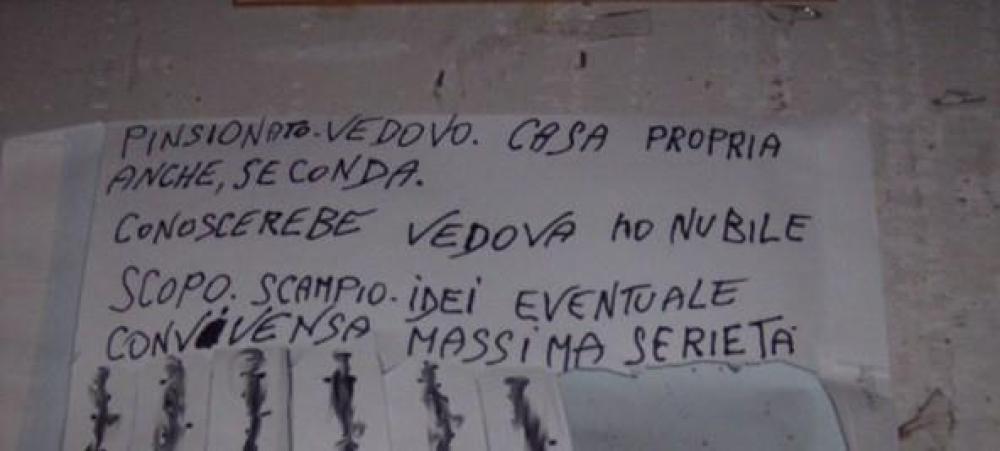 PINSIONATO. VEDOVO. CASA PROPRIA
ANCHE, SECONDA.
CONOSCEREBE VEDOVA HO NUBILE
SCOPO. SCAMPIO. IDEI EVENTUALE
CONVIVENSA MASSIMA SERIETÀ